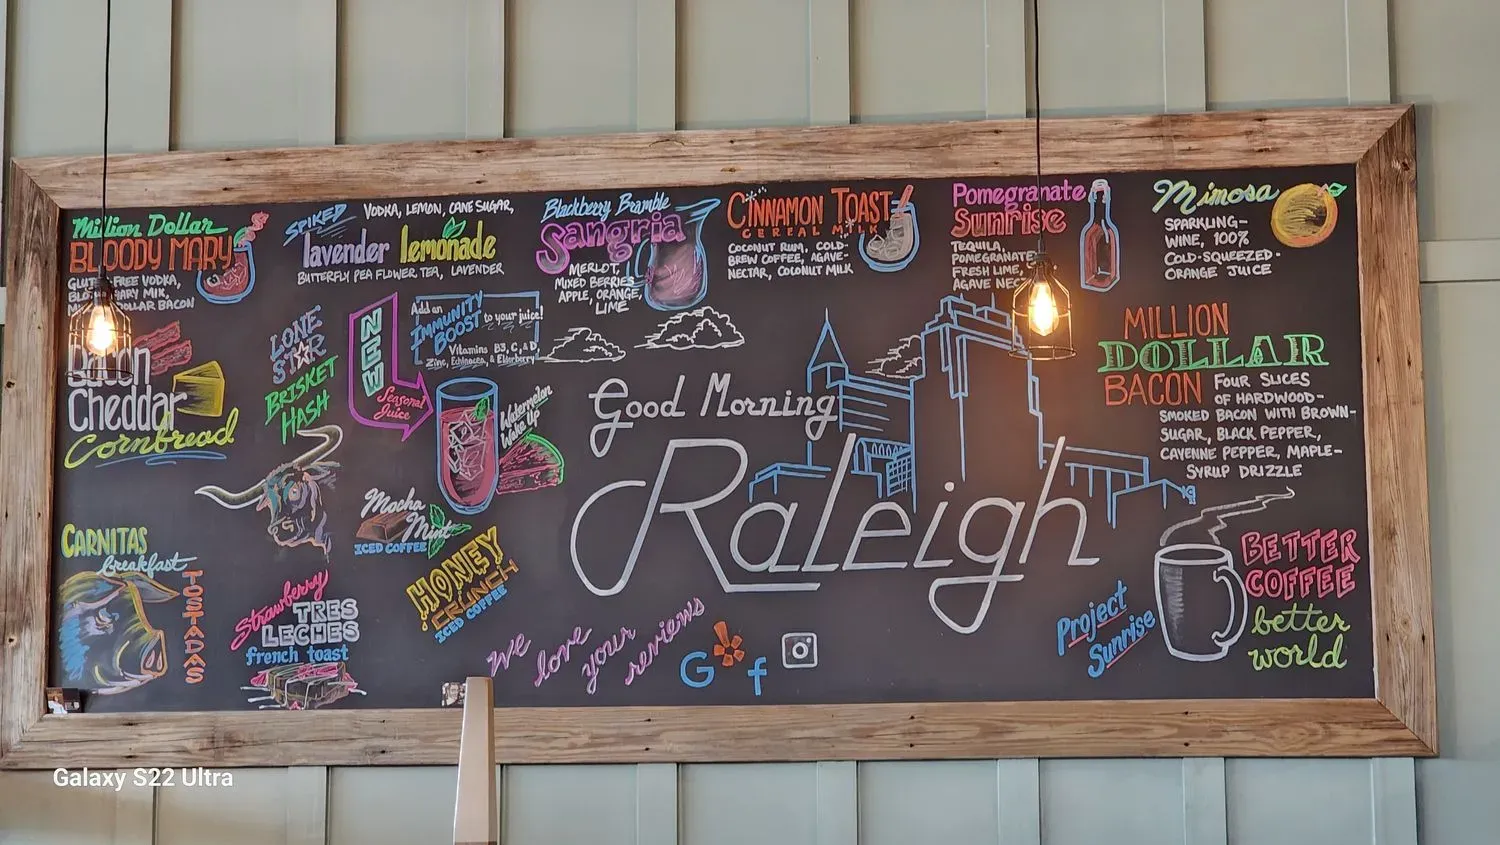 Million Dollar
BLOODY MARY
FREE VODKA,
MARY MIX,
DOLLAR BACON
SPIKED
VODKA, LEMON, CANE SUGAR,
lavender lemonade
BUTTERFLY PEA FLOWER TEA, LAVENDER
Blackberry Bramble
Sangria
MERLOT,
MIXED BERRIES
APPLE, ORANGE,
LIME
CINNAMON TOAST
CEREAL MILK
COCONUT RUM, COLD-
BREW COFFEE, AGAVE-
NECTAR, COCONUT MILK
Pomegranate
Sunrise
TEQUILA,
POMEGRANATE
FRESH LIME,
AGAVE
Mimosa
SPARKLING-
WINE, 100%
COLD-SQUEEZED-
ORANGE JUICE
Bacon
Cheddar
Cornbread
LONE
STAR
BRISKET
HASH
NEW
Seasonal
Juice
Add an
IMMUNITY
BOOST
to your juice!
Vitamins B3, C, & D,
Zinc, Echinacea, & Elderberry
Watermelon
Wake Up
Good Morning
Raleigh
MILLION
DOLLAR
BACON
FOUR SLICES
OF HARDWOOD-
SMOKED BACON WITH BROWN-
SUGAR, BLACK PEPPER,
CAYENNE PEPPER, MAPLE-
SYRUP DRIZZLE
CARNITAS
breakfast
TOSTADAS
Mocha
Mint
ICED COFFEE
HONEY
CRUNCH
ICED COFFEE
Strawberry
TRES
LECHES
french toast
we love your reviews
G
f
Project
Sunrise
BETTER
COFFEE
better
world
Galaxy S22 Ultra